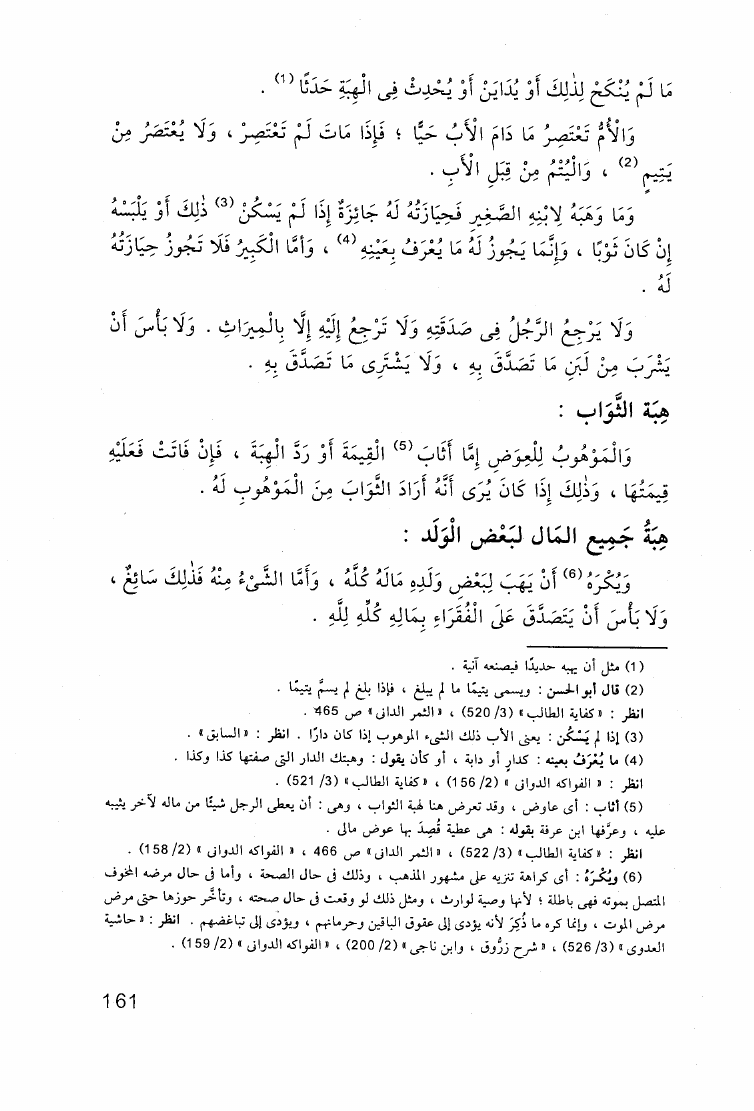 مَا لَمْ يُنْكَحْ لِذٰلِكَ أَوْ يُدَايَنْ أَوْ يُحْدِثْ فِى الْهِبَةِ حَدَثًا (1) .
وَالْأُمُّ تَعْتَصِرُ مَا دَامَ الْأَبُ حَيًّا ؛ فَإِذَا مَاتَ لَمْ تَعْتَصِرْ ، وَلَا يُعْتَصَرُ مِنْ
يَتِيمٍ (2) ، وَالْيُتْمُ مِنْ قِبَلِ الْأَبِ .
وَمَا وَهَبَهُ لِابْنِهِ الصَّغِيرِ فَحِيَازَتُهُ لَهُ جَائِزَةٌ إِذَا لَمْ يَسْكُنْ (3) ذٰلِكَ أَوْ يَلْبَسْهُ
إِنْ كَانَ ثَوْبًا ، وَإِنَّمَا يَجُوزُ لَهُ مَا يُعْرَفُ بِعَيْنِهِ (4) ، وَأَمَّا الْكَبِيرُ فَلَا تَجُوزُ حِيَازَتُهُ
لَهُ .
وَلَا يَرْجِعُ الرَّجُلُ فِى صَدَقَتِهِ وَلَا تَرْجِعُ إِلَيْهِ إِلَّا بِالْمِيرَاثِ . وَلَا بَأْسَ أَنْ
يَشْرَبَ مِنْ لَبَنِ مَا تَصَدَّقَ بِهِ ، وَلَا يَشْتَرِى مَا تَصَدَّقَ بِهِ .
هِبَة الثَّوَاب :
وَالْمَوْهُوبُ لِلْعِوَضِ إِمَّا أَثَابَ (5) الْقِيمَةَ أَوْ رَدَّ الْهِبَةَ ، فَإِنْ فَاتَتْ فَعَلَيْهِ
قِيمَتُهَا ، وَذٰلِكَ إِذَا كَانَ يُرَى أَنَّهُ أَرَادَ الثَّوَابَ مِنَ الْمَوْهُوبِ لَهُ .
هِبَةُ جَمِيعِ المَال لبَعْض الْوَلَد :
وَيُكْرَهُ (6) أَنْ يَهَبَ لِبَعْضِ وَلَدِهِ مَالَهُ كُلَّهُ ، وَأَمَّا الشَّىْءُ مِنْهُ فَذٰلِكَ سَائِغٌ ،
وَلَا بَأْسَ أَنْ يَتَصَدَّقَ عَلَى الْفُقَرَاءِ بِمَالِهِ كُلِّهِ لِلّٰهِ .
(1) مثل أن يهبه حديدًا فيصنعه آنية .
(2) قال أبو الحسن : ويسمى يتيمًا ما لم يبلغ ، فإذا بلغ لم يسمَّ يتيمًا .
انظر : « كفاية الطالب » (3/ 520) ، « الثمر الدانى » ص 465 .
(3) إذا لم يَسْكُن : يعنى الأب ذلك الشىء الموهوب إذا كان دارًا . انظر : « السابق » .
(4) ما يُعْرَفُ بعينه : كدارٍ أو دابة ، أو كأن يقول : وهبتك الدار التى صفتها كذا وكذا .
انظر : « الفواكه الدوانى » (2/ 156) ، « كفاية الطالب » (3/ 521) .
(5) أثاب : أى عاوض ، وقد تعرض هنا لهبة الثواب ، وهى : أن يعطى الرجل شيئًا من ماله لآخر يثيبه
عليه ، وعرَّفها ابن عرفة بقوله : هى عطية قُصِدَ بها عوض مالى .
انظر : « كفاية الطالب » (3/ 522) ، « الثمر الدانى » ص 466 ، « الفواكه الدوانى » (2/ 158) .
(6) ويُكْرَهُ : أى كراهة تنزيه على مشهور المذهب ، وذلك فى حال الصحة ، وأما فى حال مرضه المخوف
المتصل بموته فهى باطلة ؛ لأنها وصية لوارث ، ومثل ذلك لو وقعت فى حال صحته ، وتأخَّر حوزها حتى مرض
مرض الموت ، وإنما كره ما ذُكِرَ لأنه يؤدى إلى عقوق الباقين وحرمانهم ، ويؤدى إلى تباغضهم . انظر : « حاشية
العدوى » (3/ 526) ، « شرح زرُّوق ، وابن ناجى » (2/ 200) ، « الفواكه الدوانى » (2/ 159) .
161